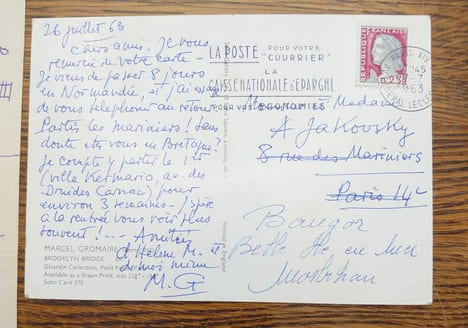 26 juillet 63
Chers amis. Je vous
remercie de votre carte -
Je viens de passer 8 jours
en Normandie, et j'ai essayé
de vous telephoner au retour
Partis les mariniers! Sans
doute etes vous en Bretagne?
Je compte y partir le 1er
(villa Kermario, av. des
Druides Carnac) pour
environ 3 semaines. J'espère
à la rentrée vous voir plus
souvent! --- Amitiés
d'Hélène M. et
de moi même
M. G
MARCEL GROMAIRE
BROOKLYN BRIDGE
Girardin Collection, Petit
Available as a Braun Print, size
Soho Card 370
LA POSTE POUR VOTRE
"COURRIER"
LA
CAISSE NATIONALE D'EPARGNE
POUR VOS ECONOMIES
REPUBLIQUE FRANÇAISE
0,25
63
Monsieur Madame
A Jakovsky
8 rue des Mariniers
Paris 14e
Bangor
Belle Ile en Mer
Morbihan